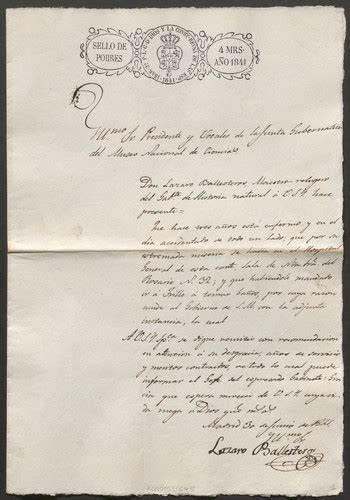 SELLO DE
POBRES
4 MRS.
AÑO 1841
Yllmo. Sr. Presidente y Vocales de la Junta Gubernativa
del Museo Nacional de Ciencias
Don Lazaro Ballesteros, Maestro relogero
del Gabte. de Historia natural á V.S.Y. hace
presente:
Que hace tres años está enfermo y en el
dia accidentado de todo un lado, que por su
estremada miseria se halla en el Hospital
General de esta corte Sala de Ntra. Sra. del
Rosario N. 32, y que habiendole mandado
ir a Trillo á tomar baños, por cuya razon
acude al Gobierno de S.M. con la adjunta
instancia, la cual
A V.S.Y. se digne remitir con recomendacion
en atencion á su desgracia, años de servicio
y meritos contraidos, de todo lo cual puede
informar el Gefe del expresado Gabinete: Gra-
cia que espera merecer de V.S.Y. cuya vi-
da ruega á Dios
Madrid 30 de Junio de 1841
Yllmo. Sr.
Lazaro Ballesteros